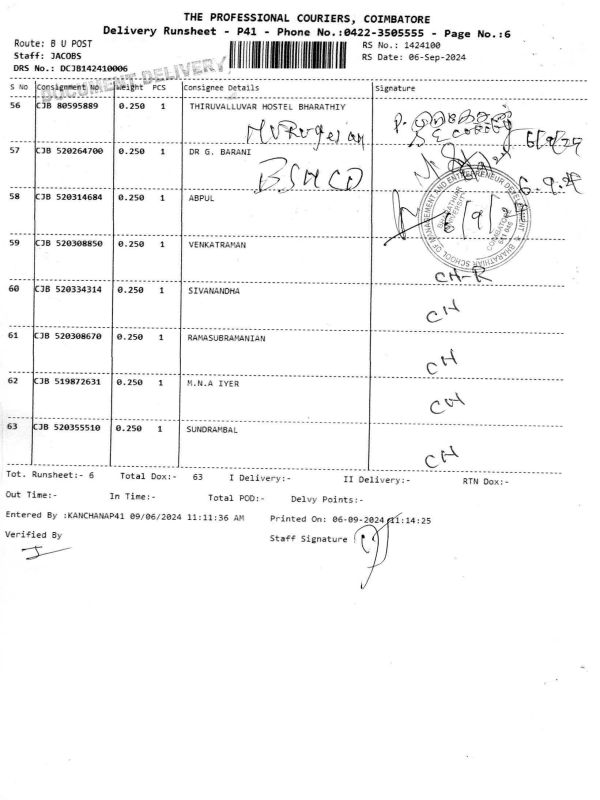 THE PROFESSIONAL COURIERS, COIMBATORE
Delivery Runsheet - P41 - Phone No.:0422-3505555 - Page No.:6
Route: B U POST
RS No.: 1424100
Staff: JACOBS
RS Date: 06-Sep-2024
DRS No.: DCJB142410006
DOCUMENT DELIVERY
S No Consignment No. Weight PCS Consignee Details Signature
56 CJB 80595889 0.250 1 THIRUVALLUVAR HOSTEL BHARATHIY
Murugesan
SECURITY 6/9/24
57 CJB 520264700 0.250 1 DR G. BARANI
BSMED
6.9.24
58 CJB 520314684 0.250 1 ABPUL
6/9/24
BHARATHIAR SCHOOL OF MANAGEMENT AND ENTREPRENEUR DEVELOPMENT
BHARATHIAR UNIVERSITY
COIMBATORE 641 046
59 CJB 520308850 0.250 1 VENKATRAMAN
CH-R
60 CJB 520334314 0.250 1 SIVANANDHA
CH
61 CJB 520308670 0.250 1 RAMASUBRAMANIAN
CH
62 CJB 519872631 0.250 1 M.N.A IYER
CH
63 CJB 520355510 0.250 1 SUNDRAMBAL
CH
Tot. Runsheet:- 6 Total Dox:- 63 I Delivery:- II Delivery:- RTN Dox:-
Out Time:- In Time:- Total POD:- Delvy Points:-
Entered By :KANCHANAP41 09/06/2024 11:11:36 AM Printed On: 06-09-2024 11:14:25
Verified By
Staff Signature